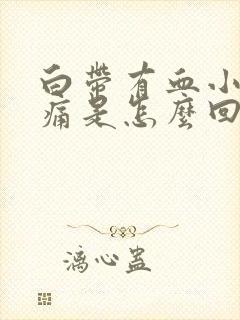 白帶有血小
痛是怎麼回
漓心蠱